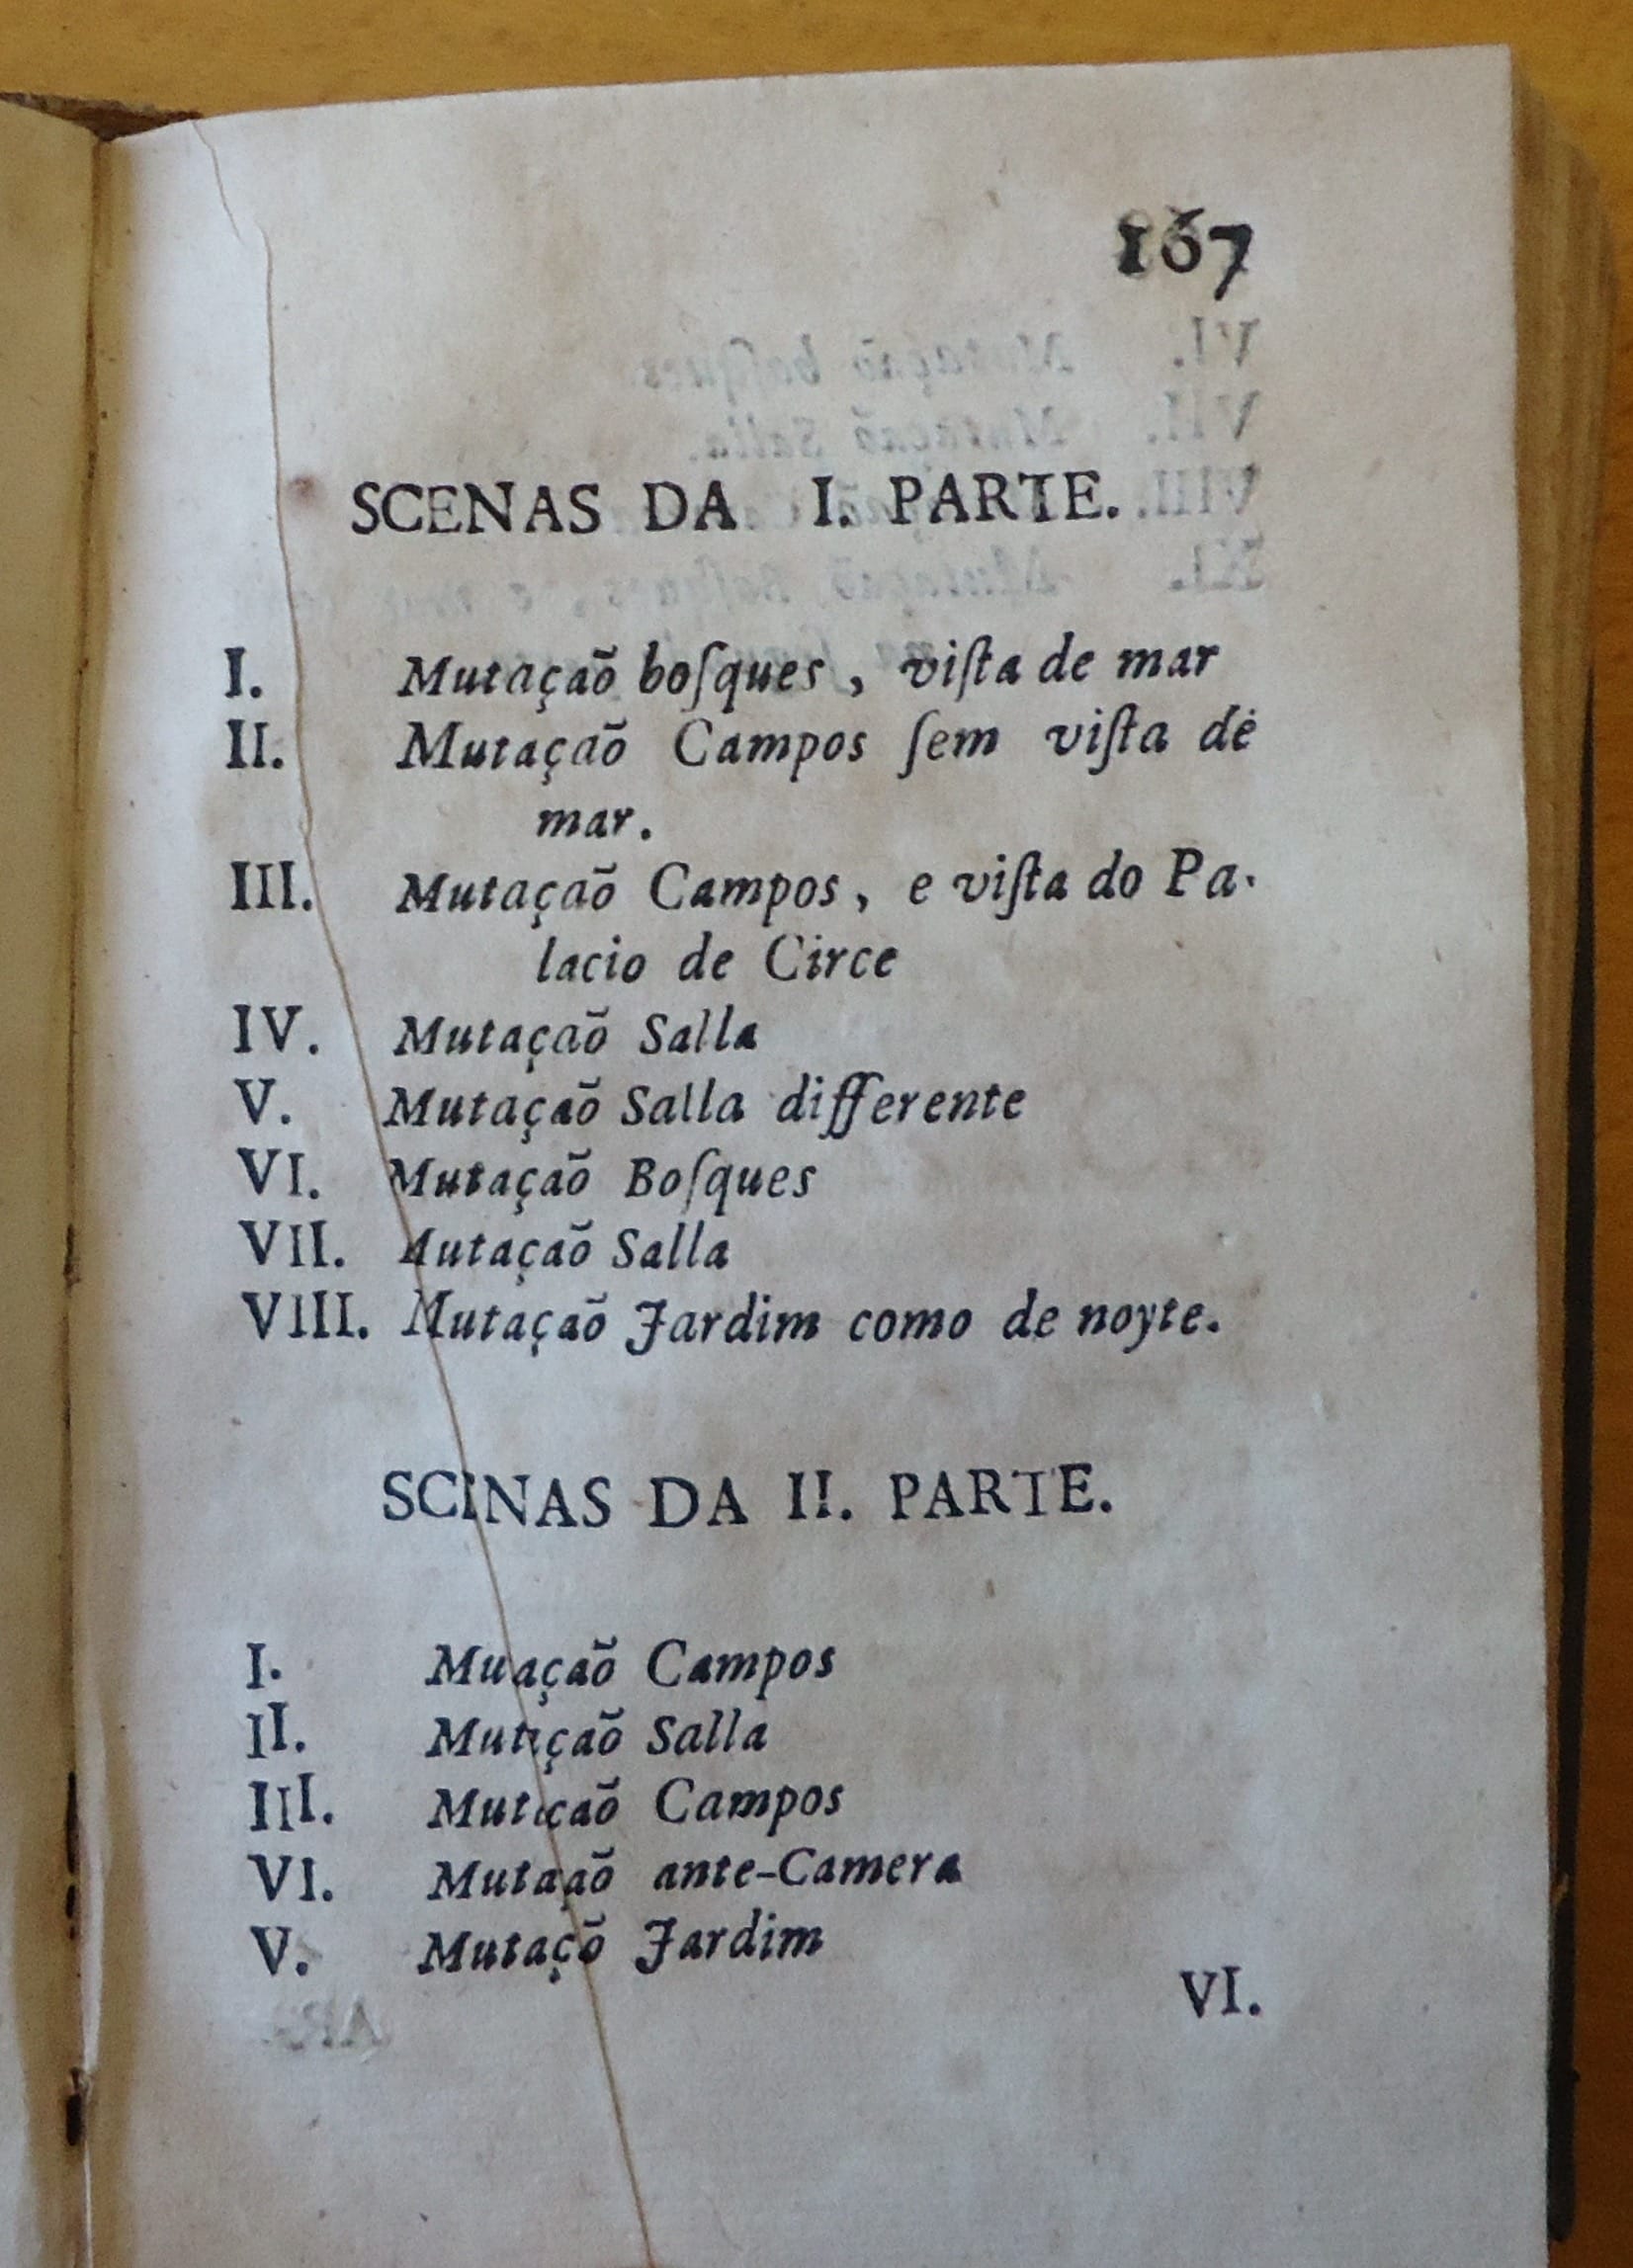 167
SCENAS DA I. PARTE.
I. Mutaçaõ boſques, viſta de mar
II. Mutaçaõ Campos ſem viſta de
mar.
III. Mutaçaõ Campos, e viſta do Pa-
lacio de Circe
IV. Mutaçaõ Salla
V. Mutaçaõ Salla differente
VI. Mutaçaõ Boſques
VII. Mutaçaõ Salla
VIII. Mutaçaõ Jardim como de noyte.
SCENAS DA II. PARTE.
I. Mutaçaõ Campos
II. Mutaçaõ Salla
III. Mutaçaõ Campos
VI. Mutaçaõ ante-Camera
V. Mutaçaõ Jardim
VI.